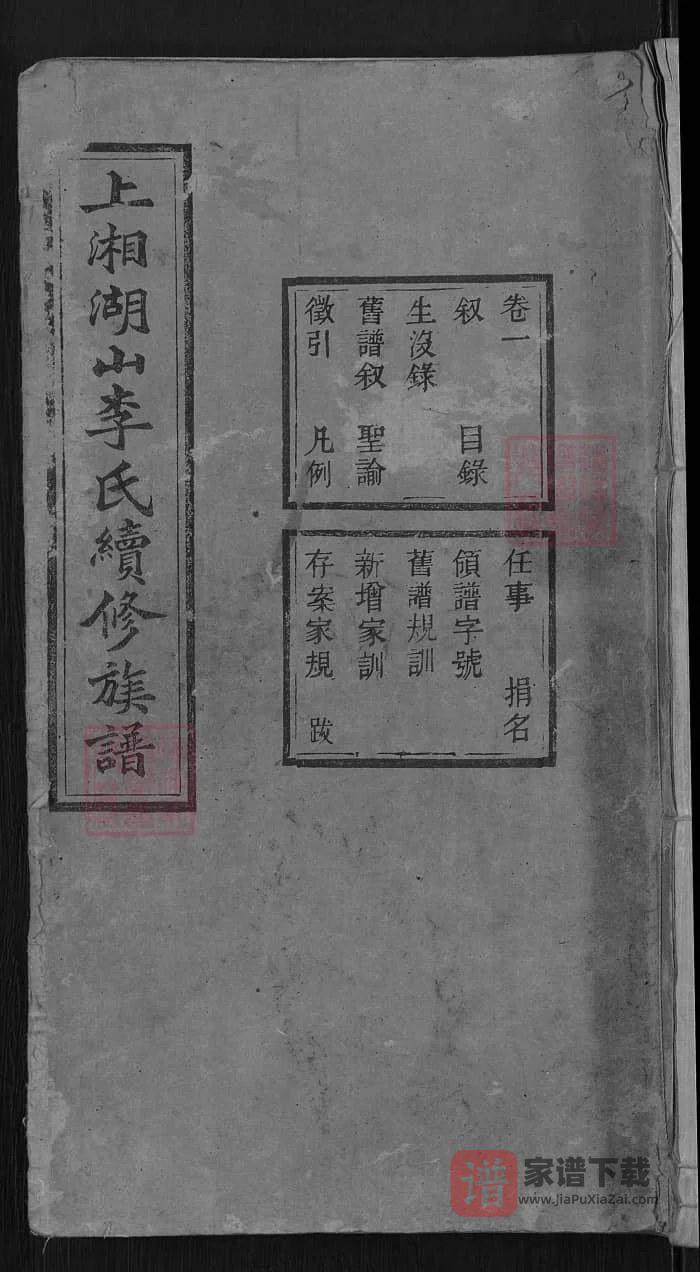 上湘湖山李氏續修族譜
卷一
叙 目錄
生沒錄
舊譜叙 聖諭
徵引 凡例
任事 捐名
領譜字號
舊譜規訓
新增家訓
存案家規 跋
谱
家谱下载
www.JiaPuXiaZai.com